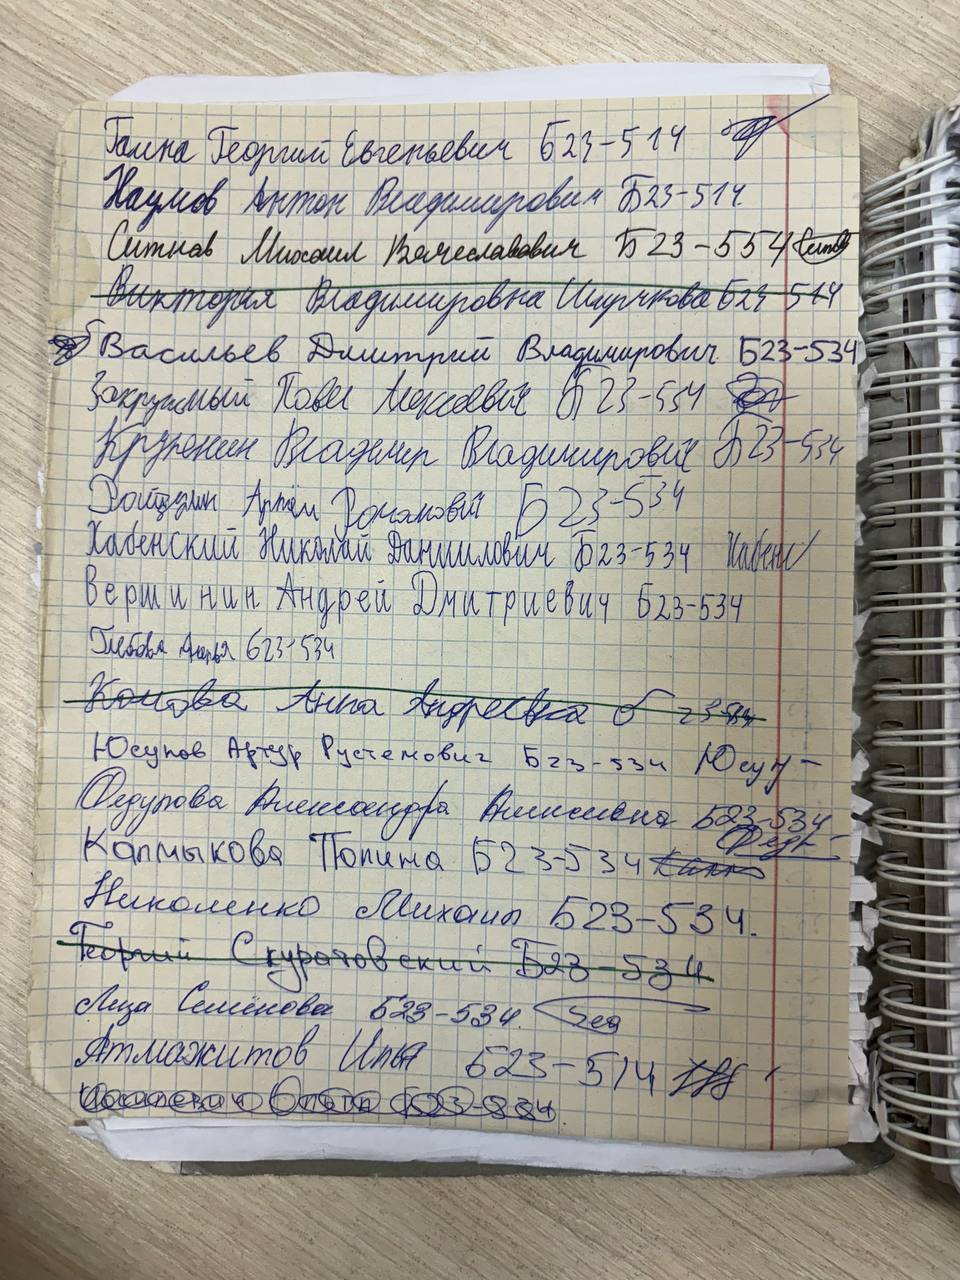 Гална Георгий Евгеньевич Б23-514
Наумов Антон Владимирович Б23-514
Ситнов Михаил Вячеславович Б23-554
Виктория Владимировна Б23-514
Васильев Дмитрий Владимирович Б23-534
Закружный Павел Алексеевич Б23-534
Крупенин Владимир Владимирович Б23-534
Артём Романович Б23-534
Хабенский Николай Даниилович Б23-534 Хабенс
Вершинин Андрей Дмитриевич Б23-534
Глебова Дарья Б23-534
Комова Анна Андреевна Б23-534
Юсупов Артур Рустемович Б23-534 Юсуп
Федулова Александра Алексеевна Б23-534
Калмыкова Полина Б23-534
Николенко Михаил Б23-534.
Георгий Скуратовский Б23-534
Лиза Семёнова Б23-534.
Атмажитов Илья Б23-514